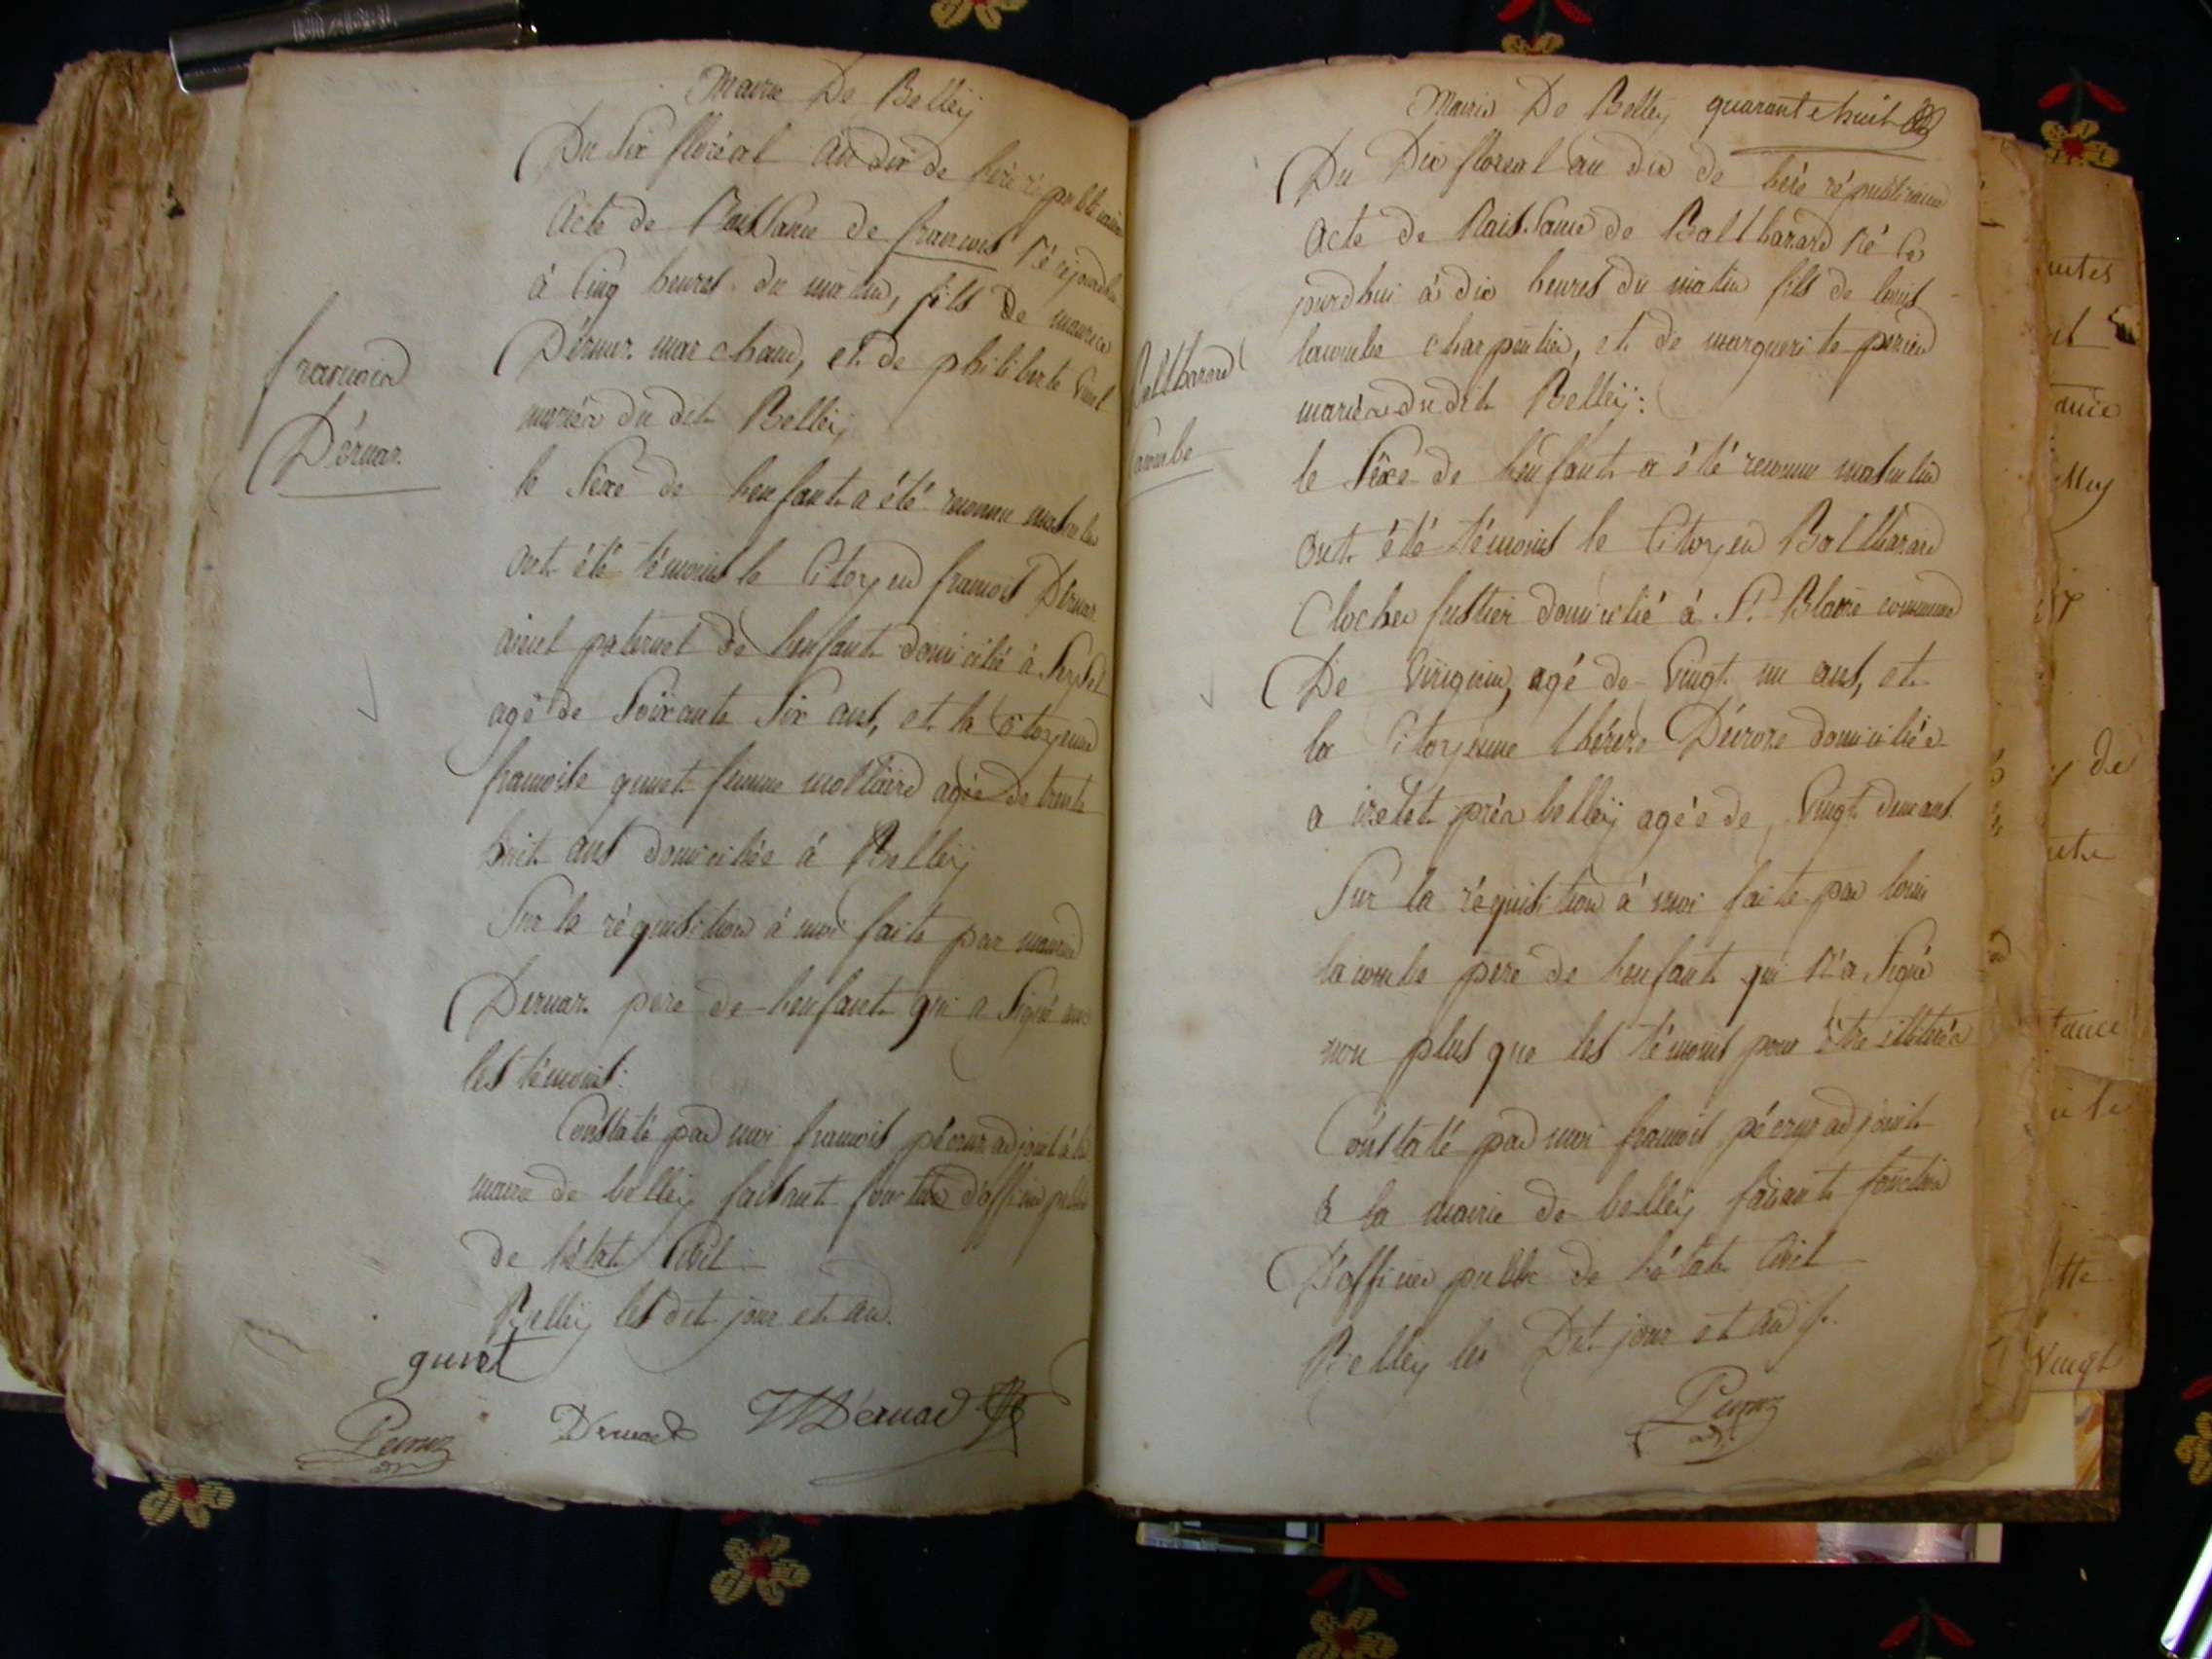 Mairie De Belleÿ
Du Six floréal an dix de l'ère républicaine
Acte de Naissance de francois Né cejourdhui
à Cinq heures du matin, fils de maurice
Dérnaz marchand, et de philiberte
mariés du dit Belleÿ
le Séxe de l'enfant a été reconnu masculin
ont été témoins le Citoyen francois Dernaz
aieul paternel de l'enfant domicilié à
agé de Soixante Six ans, et la Citoyenne
francoise femme agée de trente
huit ans domiciliée à Belleÿ
Sur la réquisition à moi faite par maurice
Dernaz pere de l'enfant qui a Signé avec
les témoins.
Constaté par moi francois adjoint à la
mairie de belleÿ faisant fonction d'officier public
de l'état Civil
Belleÿ les dit jour et an.
francois
Dérnaz
Mairie De Belleÿ quarante huit
Du Dix floréal an dix de l'ére républicaine
Acte de Naissance de Balthazard Né Ce
jourdhui à dix heures du matin fils de louis
lacombe charpentier, et de marguerite
mariés du dit Belleÿ.
le Séxe de l'enfant a été reconnu masculin
ont été témoins le Citoyen Balthazard
Clocher fustier domicilié à St. Blaise commune
De Virignin, agé de Vingt un ans, et
la Citoyenne thérèze domiciliée
a près belleÿ agée de Vingt deux ans.
Sur la réquisition à moi faite par louis
lacombe pere de l'enfant qui N'a Signé
non plus que les témoins pour être illitérés
Constaté par moi francois adjoint
à la mairie de belleÿ faisant fonction
D'officier public de l'état Civil
Belleÿ les Dit jour et an
Balthazard
lacombe